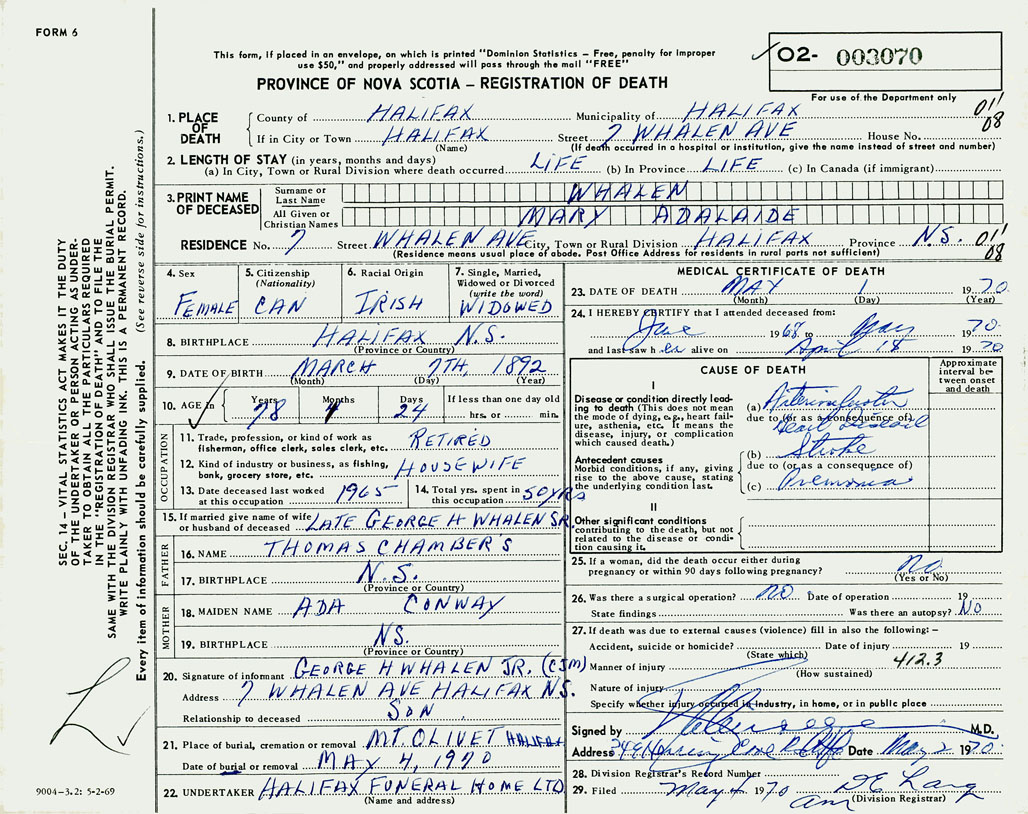 FORM 6
This form, if placed in an envelope, on which is printed "Dominion Statistics – Free, penalty for improper
use $50," and properly addressed will pass through the mail "FREE"
PROVINCE OF NOVA SCOTIA – REGISTRATION OF DEATH
O2- 003070
For use of the Department only
1. PLACE OF DEATH
County of HALIFAX Municipality of HALIFAX 011
If in City or Town HALIFAX Street 7 WHALEN AVE House No. 08
(Name) (If death occurred in a hospital or institution, give the name instead of street and number)
2. LENGTH OF STAY (in years, months and days)
(a) In City, Town or Rural Division where death occurred LIFE (b) In Province LIFE (c) In Canada (if immigrant)
3. PRINT NAME OF DECEASED
Surname or Last Name WHALEN
All Given or Christian Names MARY ADALAIDE
RESIDENCE No. 7 Street WHALEN AVE City, Town or Rural Division HALIFAX Province N.S. 011
(Residence means usual place of abode. Post Office Address for residents in rural parts not sufficient) 08
4. Sex
FEMALE
5. Citizenship
(Nationality)
CAN
6. Racial Origin
IRISH
7. Single, Married,
Widowed or Divorced
(write the word)
WIDOWED
8. BIRTHPLACE HALIFAX N.S.
(Province or Country)
9. DATE OF BIRTH MARCH 7TH, 1892
(Month) (Day) (Year)
10. AGE in Years Months Days If less than one day old
78 24 hrs. or min.
OCCUPATION
11. Trade, profession, or kind of work as
fisherman, office clerk, sales clerk, etc. RETIRED
12. Kind of industry or business, as fishing,
bank, grocery store, etc. HOUSEWIFE
13. Date deceased last worked
at this occupation 1965
14. Total yrs. spent in
this occupation 50 YRS
15. If married give name of wife
or husband of deceased LATE GEORGE H WHALEN SR.
FATHER
16. NAME THOMAS CHAMBER'S
17. BIRTHPLACE N.S.
(Province or Country)
MOTHER
18. MAIDEN NAME ADA CONWAY
19. BIRTHPLACE N.S.
(Province or Country)
20. Signature of informant GEORGE H WHALEN JR.
Address 7 WHALEN AVE HALIFAX N.S.
Relationship to deceased SON
21. Place of burial, cremation or removal MT. OLIVET HALIFAX
Date of burial or removal MAY 4, 1970
22. UNDERTAKER HALIFAX FUNERAL HOME LTD
(Name and address)
MEDICAL CERTIFICATE OF DEATH
23. DATE OF DEATH MAY 1 1970
(Month) (Day) (Year)
24. I HEREBY CERTIFY that I attended deceased from:
June 196 to May 1970
and last saw her alive on April 18 1970
CAUSE OF DEATH
Approximate
interval be-
tween onset
and death
I
Disease or condition directly lead-
ing to death (This does not
mean the mode of dying, e.g., heart fail-
ure, asthenia, etc. It means the
disease, injury, or complication
which caused death.)
(a)
due to (or as a consequence of)
Heart Disease
Antecedent causes
Morbid conditions, if any, giving
rise to the above cause, stating
the underlying condition last.
(b) Stroke
due to (or as a consequence of)
(c)
II
Other significant conditions
contributing to the death, but not
related to the disease or condi-
tion causing it.
25. If a woman, did the death occur either during
pregnancy or within 90 days following pregnancy? no
(Yes or No)
26. Was there a surgical operation? no Date of operation 19
State findings Was there an autopsy? No
27. If death was due to external causes (violence) fill in also the following:–
Accident, suicide or homicide? Date of injury 19
(State which) 412.3
Manner of injury
(How sustained)
Nature of injury
Specify whether injury occurred in industry, in home, or in public place
Signed by M.D.
Address Date May 2 1970
28. Division Registrar's Record Number
29. Filed May 4 1970
(Division Registrar)
SEC. 14 – VITAL STATISTICS ACT MAKES IT THE DUTY
OF THE UNDERTAKER OR PERSON ACTING AS UNDER-
TAKER TO OBTAIN ALL THE PARTICULARS REQUIRED
IN THE "REGISTRATION OF DEATH" AND TO FILE THE
SAME WITH THE DIVISION REGISTRAR WHO SHALL ISSUE THE BURIAL PERMIT.
WRITE PLAINLY WITH UNFADING INK. THIS IS A PERMANENT RECORD.
Every item of information should be carefully supplied. (See reverse side for instructions.)
9004-3.2: 5-2-69